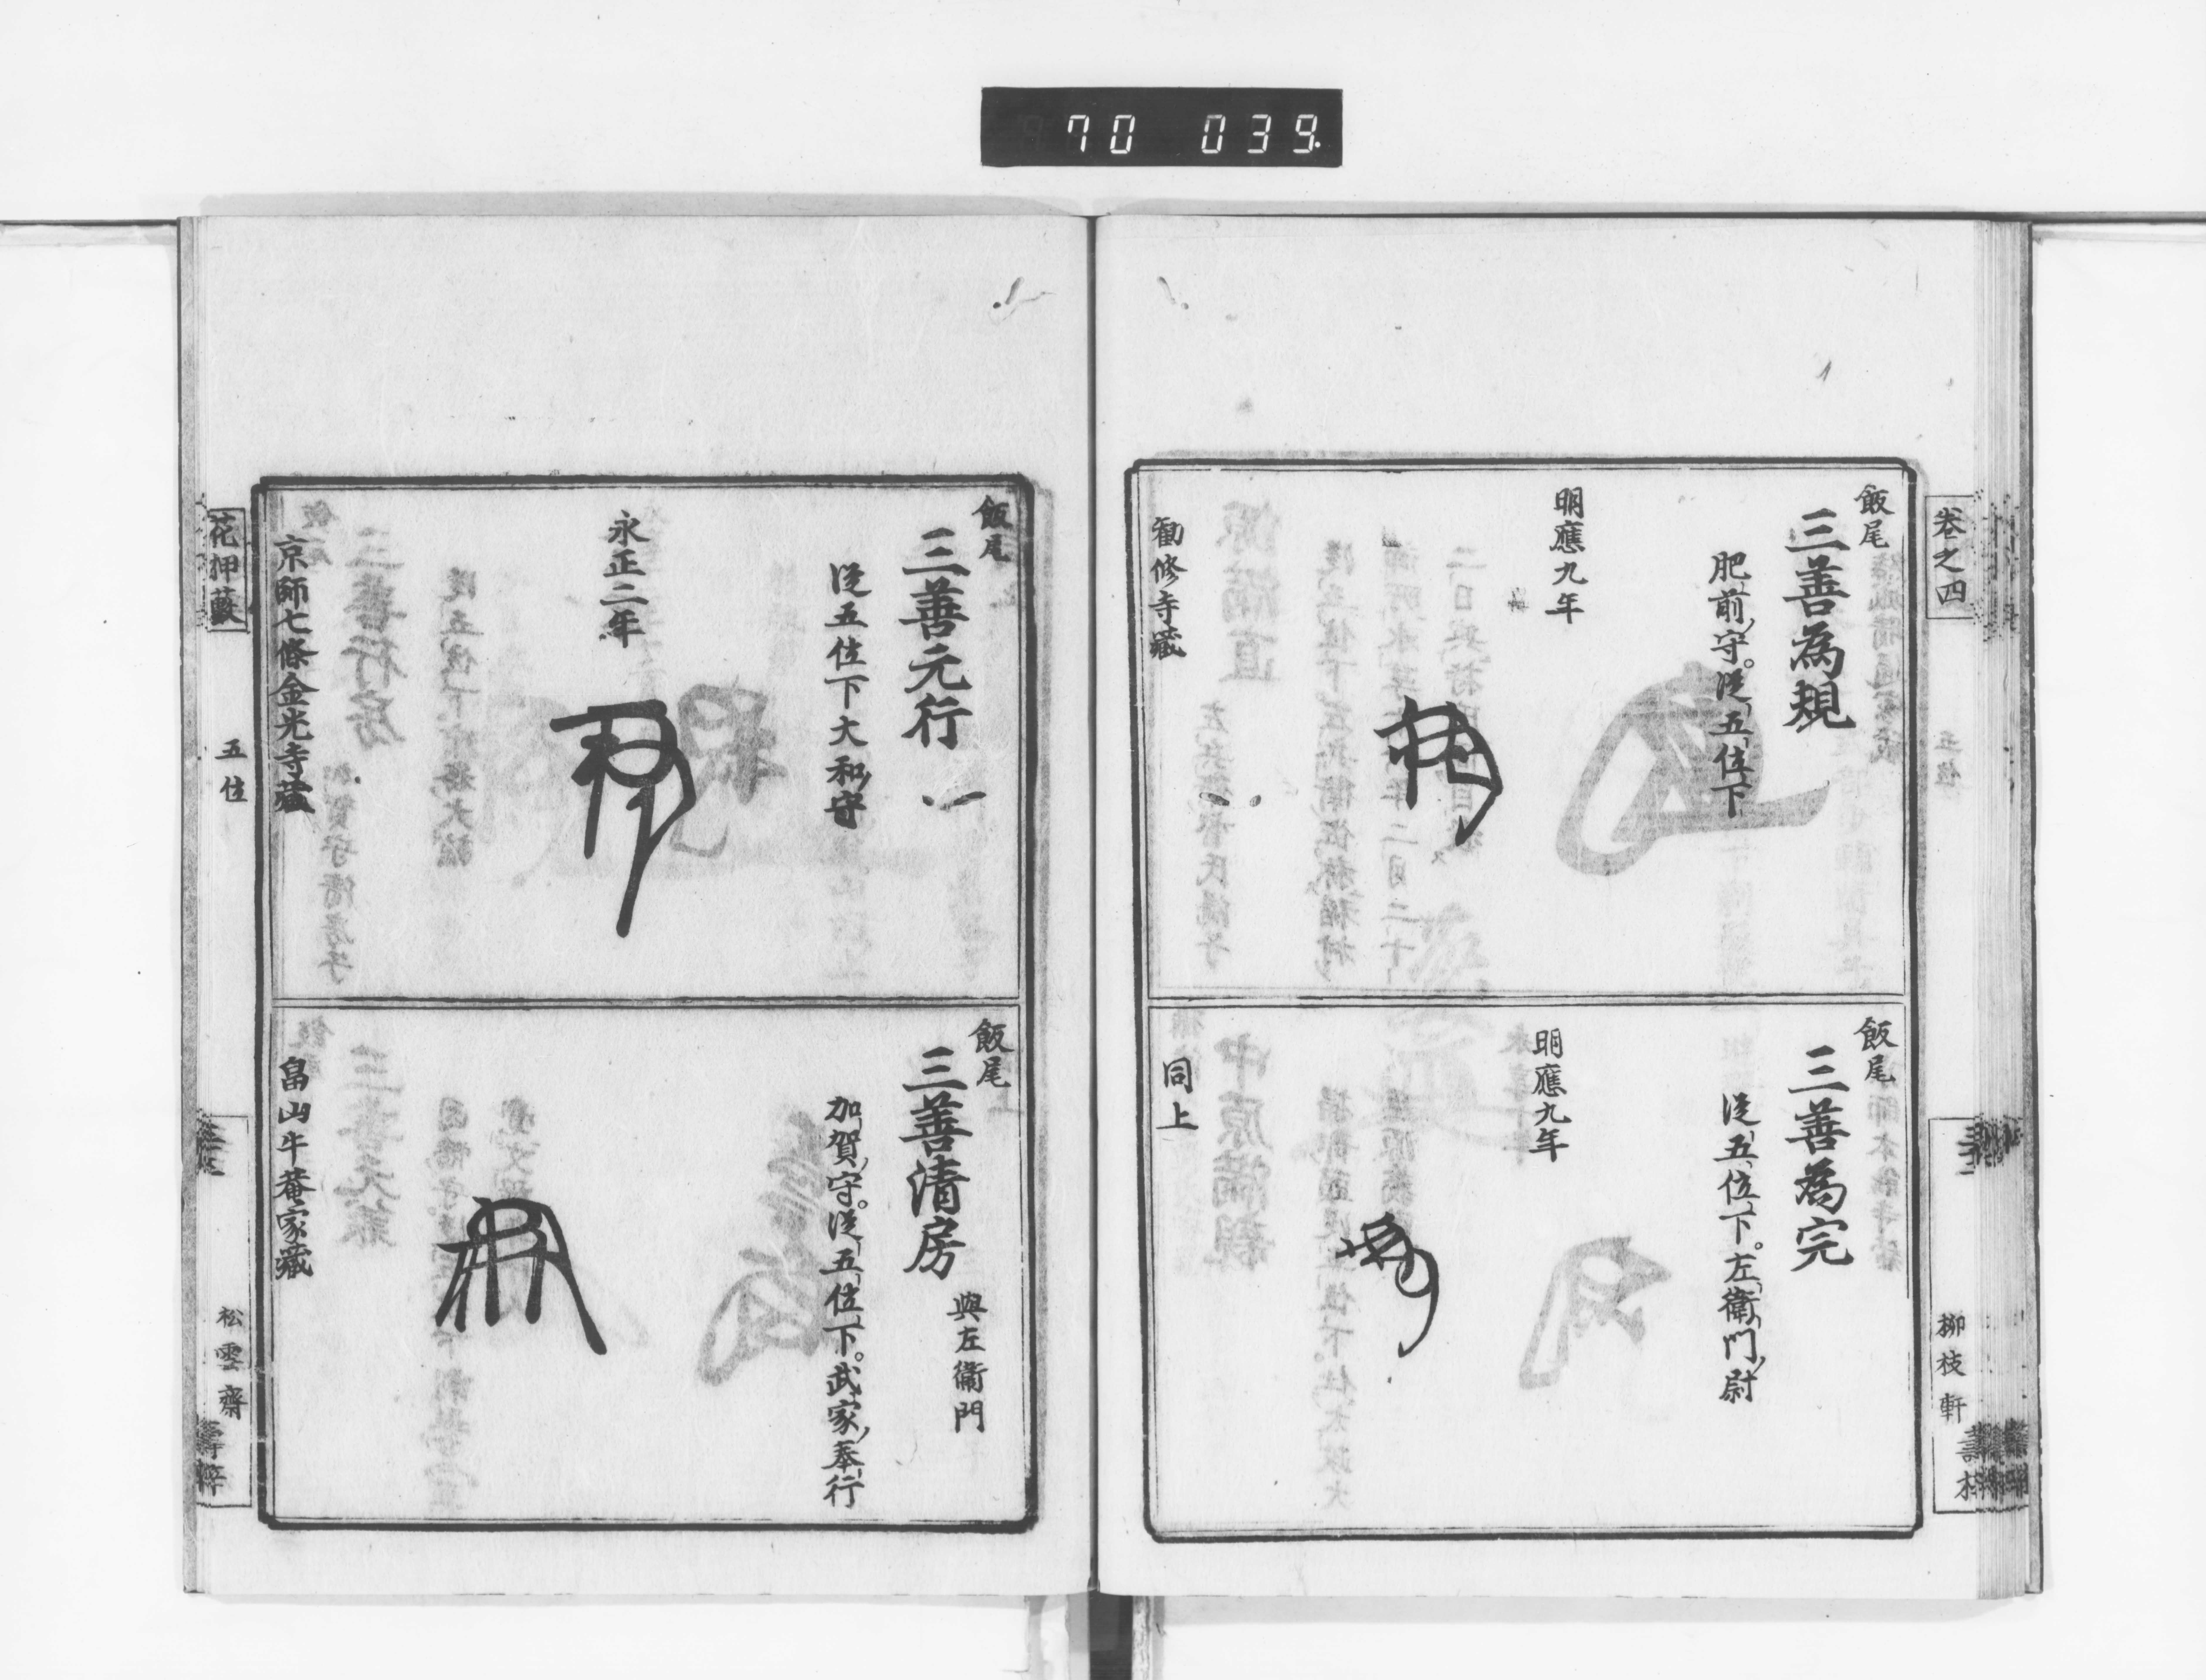 70 039
卷之四
柳枝軒
飯尾
三善為規
肥前守。従五位下
明應九年
勸修寺藏
飯尾
三善為完
従五位下。左衛門尉
明應九年
同上
飯尾
三善元行
従五位下大和守
永正二年
京師七條金光寺藏
飯尾
三善清房
與左衛門
加賀守。従五位下。武家奉行
畠山牛菴家藏
花押藪
五位
松雲齋